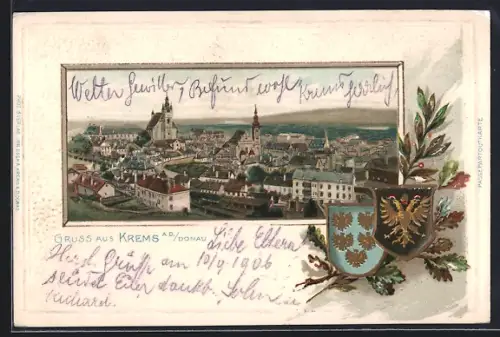 Wetter Gewitter, Befund wohl Krems herrlich,
GRUSS AUS KREMS A.D./DONAU
Liebe Eltern
Herzl. Grüsse am 10/9 1906
sendet Euer dankb. Sohn
Richard
PASSEPARTOUTKARTE